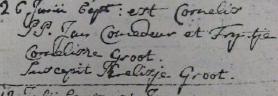 26 Junii Bapt: est Cornelis
P.P. Jan Comedeur et Tryntje
Cornelisse Groot.
Suscepit Neeltje Groot.